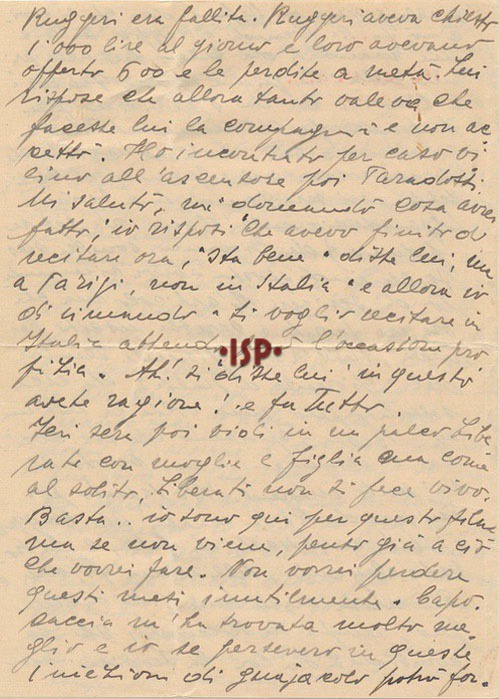 Ruggeri era fallita. Ruggeri aveva chiesto
1.000 lire al giorno e loro avevano
offerto 600 e le perdite a metà. Lui
rispose che allora tanto valeva che
facesse lui la compagnia e non ac
cettò. Ho incontrato per caso vi
cino all'ascensore poi Paradossi.
Mi salutò, mi domandò cosa avrei
fatto, io risposi che avevo finito di
recitare ora, "sta bene" disse lui, ma
a Parigi, non in Italia" e allora io
di rimando "si voglio recitare in
Italia attendo l'occasione pro
pizia. Ah! si disse lui in questo
avete ragione! e fu tutto.
Ieri sera poi vidi in un palco Libe
rati con moglie e figlia ma come
al solito, Liberati non si fece vivo.
Basta.. io sono qui per questo film
ma se non viene, penso già a ciò
che vorrei fare. Non vorrei perdere
questi mesi inutilmente. Capo
saccia m'ha trovata molto me
glio e io se persevero in queste
iniezioni di guajacolo potrò for.
·ISP·